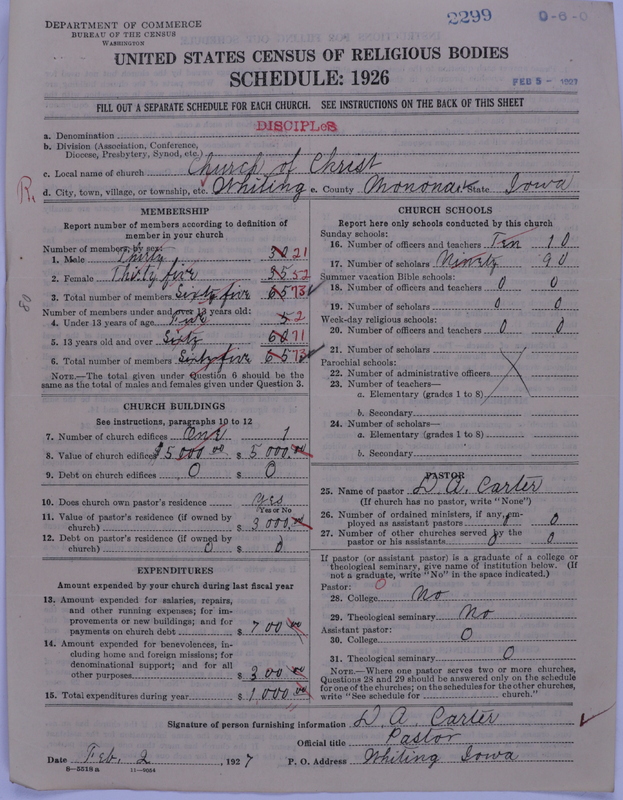 DEPARTMENT OF COMMERCE
BUREAU OF THE CENSUS
WASHINGTON
2299
0-6-0
UNITED STATES CENSUS OF RELIGIOUS BODIES
SCHEDULE: 1926
FEB 5 - 1927
FILL OUT A SEPARATE SCHEDULE FOR EACH CHURCH. SEE INSTRUCTIONS ON THE BACK OF THIS SHEET
a. Denomination DISCIPLES
b. Division (Association, Conference, Diocese, Presbytery, Synod, etc.)
c. Local name of church Church of Christ
d. City, town, village, or township, etc. Whiting e. County Monona State Iowa
R.
80
MEMBERSHIP
Report number of members according to definition of member in your church
Number of members, by sex:
1. Male Thirty 30 21
2. Female Thirty five 35 52
3. Total number of members Sixty five 65 73
Number of members under and over 13 years old:
4. Under 13 years of age Five 5 2
5. 13 years old and over Sixty 60 71
6. Total number of members Sixty five 65 73
NOTE.—The total given under Question 6 should be the same as the total of males and females given under Question 3.
CHURCH BUILDINGS
See instructions, paragraphs 10 to 12
7. Number of church edifices One 1
8. Value of church edifices $5000 00 $ 5 000.00
9. Debt on church edifices 0 $ 0
10. Does church own pastor's residence yes
Yes or No
11. Value of pastor's residence (if owned by church) $ 3 000.00
12. Debt on pastor's residence (if owned by church) 0 $ 0
EXPENDITURES
Amount expended by your church during last fiscal year
13. Amount expended for salaries, repairs, and other running expenses; for improvements or new buildings; and for payments on church debt $ 700 00
14. Amount expended for benevolences, including home and foreign missions; for denominational support; and for all other purposes $ 300 00
15. Total expenditures during year $ 1,000 00
CHURCH SCHOOLS
Report here only schools conducted by this church
Sunday schools:
16. Number of officers and teachers Ten 10
17. Number of scholars Ninety 90
Summer vacation Bible schools:
18. Number of officers and teachers 0 0
19. Number of scholars 0 0
Week-day religious schools:
20. Number of officers and teachers 0 0
21. Number of scholars
Parochial schools:
22. Number of administrative officers
23. Number of teachers—
a. Elementary (grades 1 to 8)
b. Secondary
24. Number of scholars—
a. Elementary (grades 1 to 8)
b. Secondary
PASTOR
25. Name of pastor D. A. Carter
(If church has no pastor, write "None")
26. Number of ordained ministers, if any, employed as assistant pastors 0 0
27. Number of other churches served by the pastor or his assistants 0 0
If pastor (or assistant pastor) is a graduate of a college or theological seminary, give name of institution below. (If not a graduate, write "No" in the space indicated.)
Pastor: 0
28. College No
29. Theological seminary No
Assistant pastor:
30. College 0
31. Theological seminary 0
NOTE.—Where one pastor serves two or more churches, Questions 28 and 29 should be answered only on the schedule for one of the churches; on the schedules for the other churches, write "See schedule for church."
Signature of person furnishing information D. A. Carter
Official title Pastor
Date Feb. 2, 1927 P. O. Address Whiting Iowa
8—5518a 11—9054